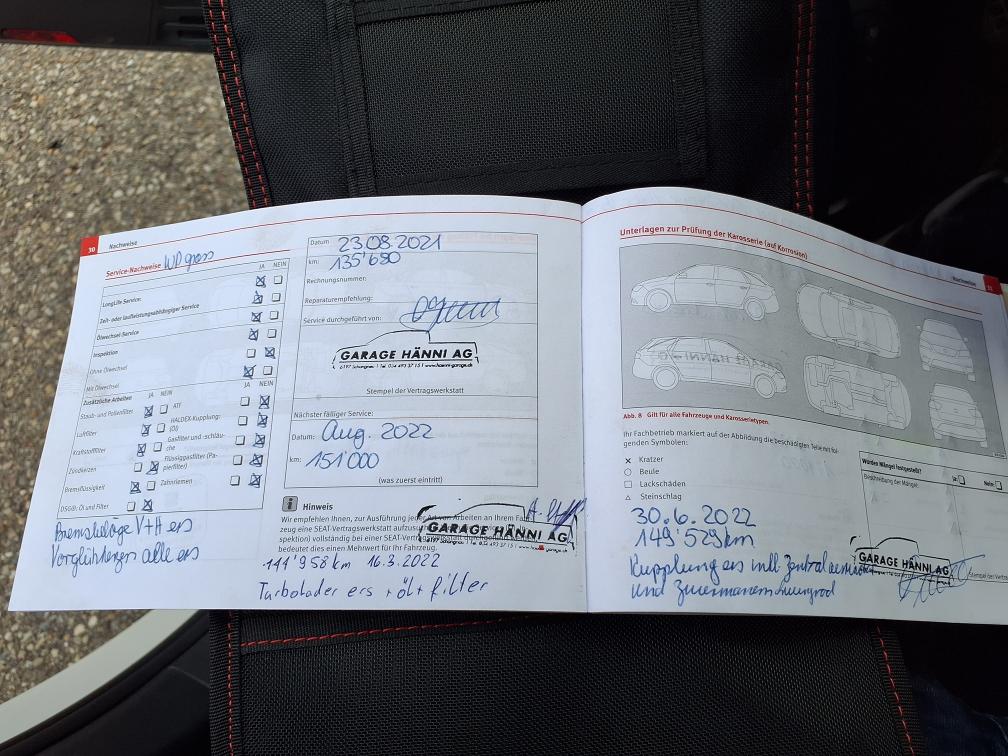 30
Nachweise
Service-Nachweise WD gross
JA NEIN
LongLife Service:
Zeit- oder laufleistungsabhängiger Service
Ölwechsel-Service
Inspektion
Ohne Ölwechsel
Mit Ölwechsel
Zusätzliche Arbeiten JA NEIN JA NEIN
Staub- und Pollenfilter
ATF
Luftfilter
HALDEX-Kupplung: (Öl)
Kraftstofffilter
Gasfilter und -schläuche
Zündkerzen
Flüssiggasfilter (Papierfilter)
Bremsflüssigkeit
Zahnriemen
DSG®: Öl und Filter
Bremsbeläge V+H ers
Vorglühkerzen alle ers
Datum 23.08.2021
km: 135'680
Rechnungsnummer:
Reparaturempfehlung:
Service durchgeführt von:
GARAGE HÄNNI AG
6197 Schangnau | Tel 034 493 37 15 | www.haenni-garage.ch
Stempel der Vertragswerkstatt
Nächster fälliger Service:
Datum: Aug. 2022
km: 151'000
(was zuerst eintritt)
Hinweis
Wir empfehlen Ihnen, zur Ausführung jeder Art von Arbeiten an Ihrem
zeug eine SEAT-Vertragswerkstatt aufzusuchen
spektion) vollständig bei einer SEAT-Vertragswerkstatt
bedeutet dies einen Mehrwert für Ihr Fahrzeug.
GARAGE HÄNNI AG
144'958 km 16.3.2022
Turbolader ers + öl + filter
Nachweise
31
Unterlagen zur Prüfung der Karosserie (auf Korrosion)
Abb. 8 Gilt für alle Fahrzeuge und Karosserietypen.
Ihr Fachbetrieb markiert auf der Abbildung die beschädigten Teile mit fol-
genden Symbolen:
× Kratzer
○ Beule
□ Lackschäden
△ Steinschlag
Würden Mängel festgestellt?
Ja Nein
Beschreibung der Mängel:
30.6.2022
149'529 km
GARAGE HÄNNI AG
Stempel des Vertra
Kupplung ers inkl Zentral
und